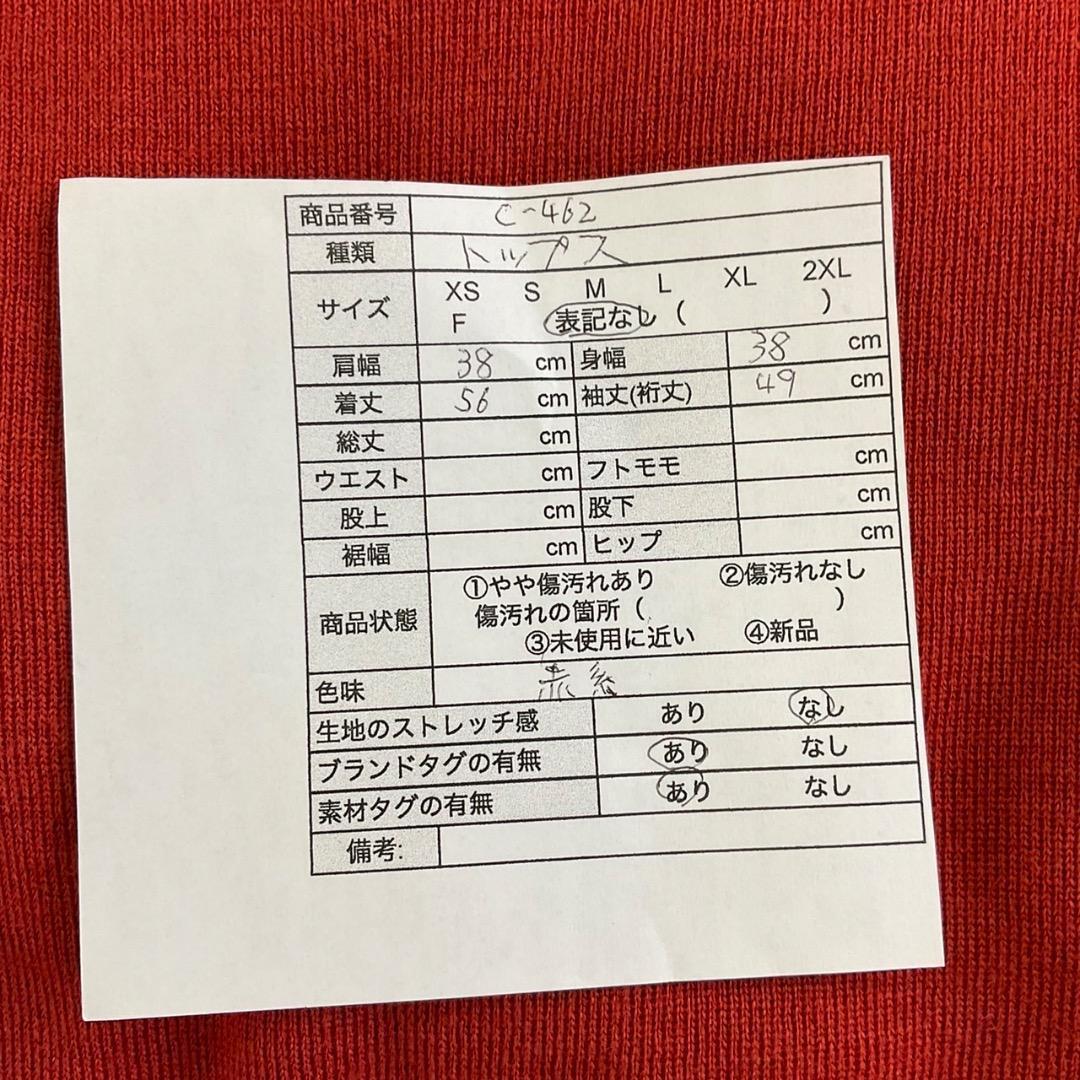 商品番号 C-462
種類 トップス
サイズ XS S M L XL 2XL
F 表記なし ( )
肩幅 38 cm 身幅 38 cm
着丈 56 cm 袖丈(裄丈) 49 cm
総丈 cm
ウエスト cm フトモモ cm
股上 cm 股下 cm
裾幅 cm ヒップ cm
商品状態 ①やや傷汚れあり ②傷汚れなし
傷汚れの箇所 ( )
③未使用に近い ④新品
色味 赤系
生地のストレッチ感 あり なし
ブランドタグの有無 あり なし
素材タグの有無 あり なし
備考: